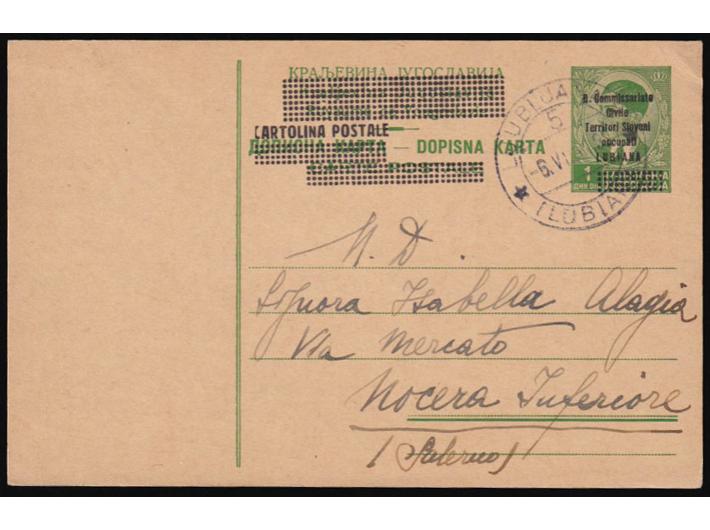 КРАЉЕВИНА ЈУГОСЛАВИЈА
CARTOLINA POSTALE
ДОПИСНА КАРТА — DOPISNA KARTA
CARTE POSTALE
R. Commissariato
Civile
Territori Sloveni
occupati
LUBIANA
1
5
-6.VI
(LUBIA
N. D.
Signora Isabella Alagia
Via Mercato
Nocera Inferiore
(Salerno)